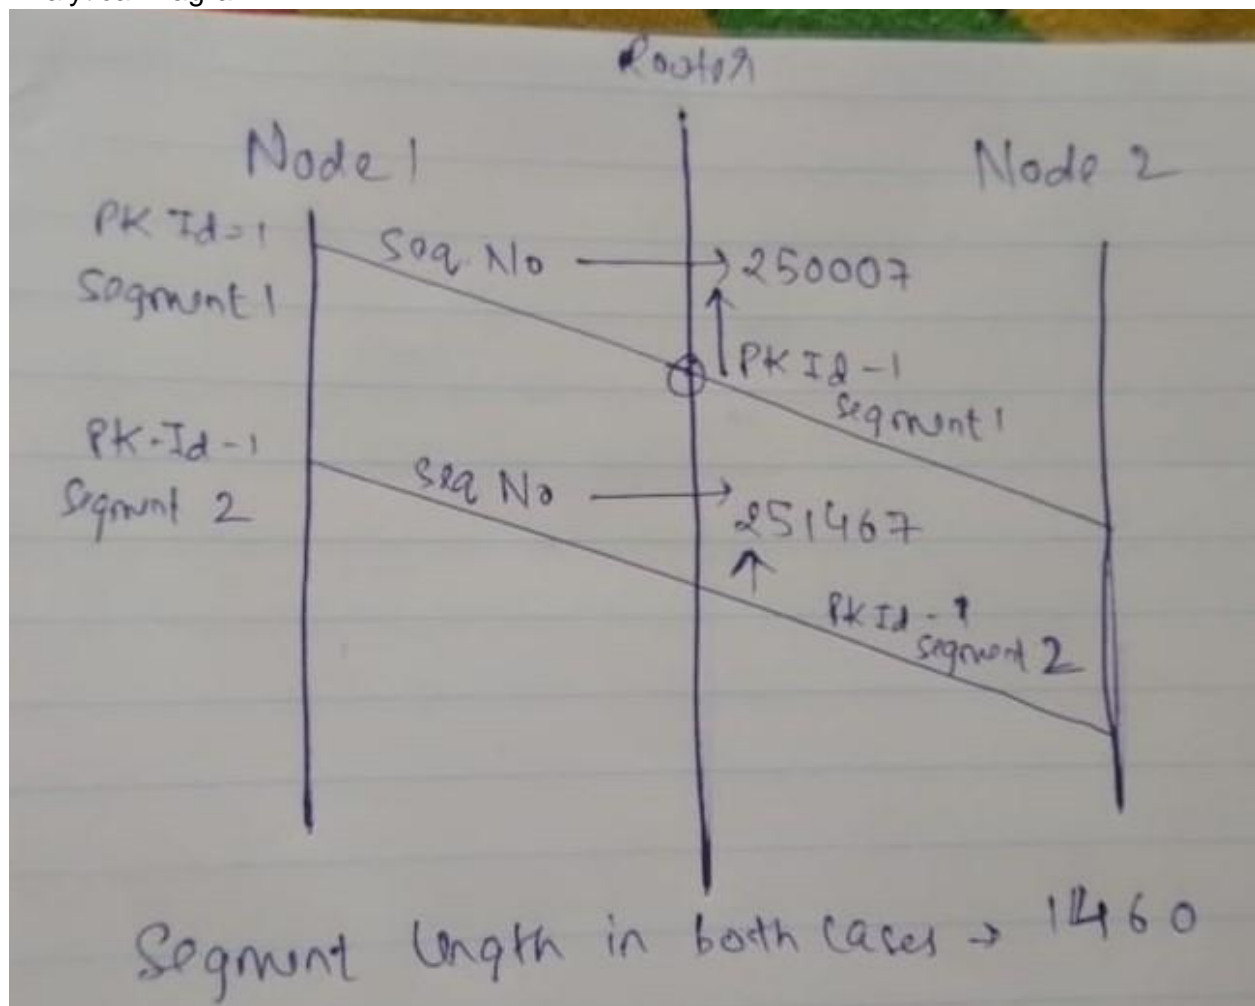 Router
Node 1
Node 2
PK Id=1
Segment 1
Seq. No → 250007
PK Id-1
segment 1
PK-Id-1
Segment 2
Seq No → 251467
PK Id-1
segment 2
Segment length in both cases → 1460